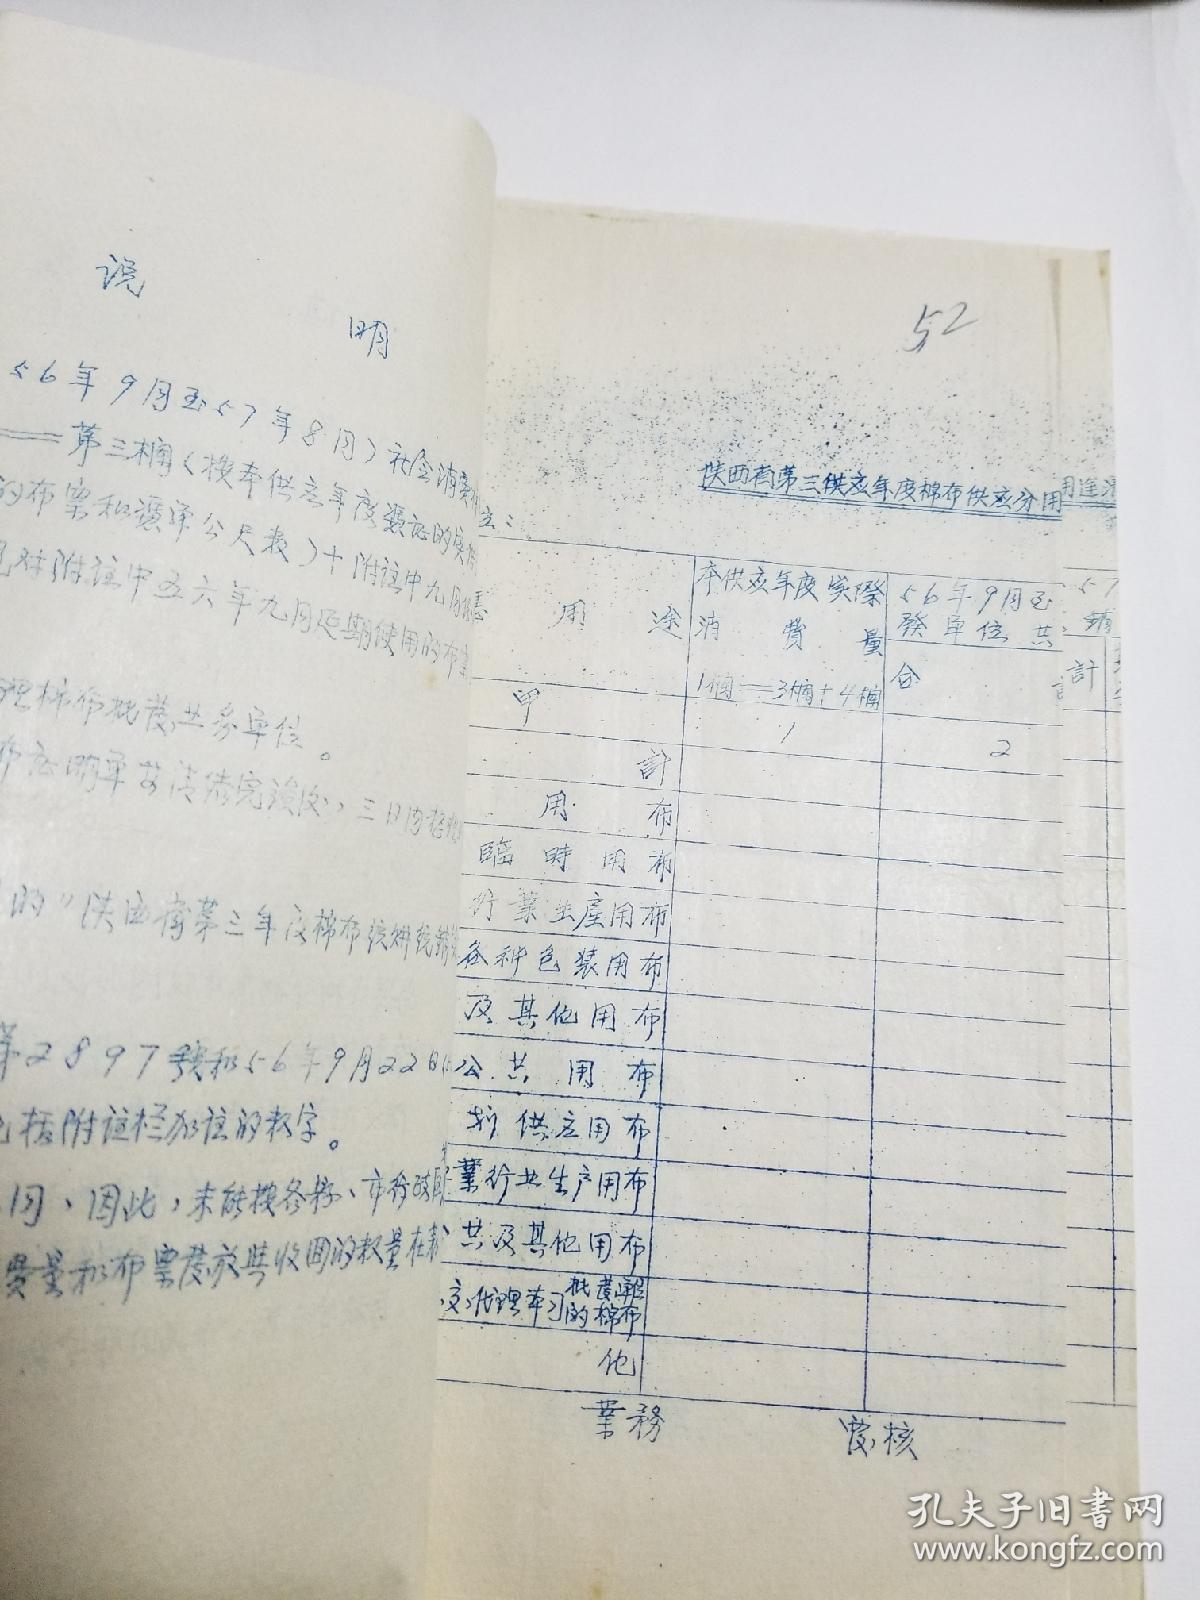 说
明
56年9月至57年8月）社会消费
——第三栏（按本供应年度凭证的实
的布票和選择公尺表）十附注中九月
对附注中五六年九月延期使用的布
理棉布批发业务单位。
三日内
的"陕西省第三年度棉布
第2897号和56年9月22日
包括附註栏加註的数字。
同、因此，未能按各县、市
费量和布票发放与收回的数量在
52
陕西省第三供应年度棉布供应分用
用途
用 途
本供应年度实際
消 費 量
1栏=3栏+4栏
56年9月至
發单位共
合
計
57
销
甲
1
2
計
用 布
臨時用布
行業生產用布
各种包装用布
及其他用布
公共用布
划供应用布
業行业生产用布
共及其他用布
交代理本习批發单位的棉布
他
業務
覆核
孔夫子旧书网
www.kongfz.com